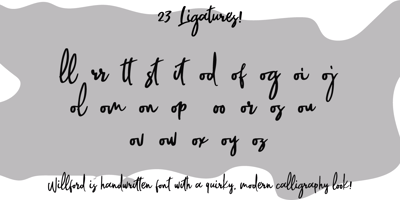 23 Ligatures!
ll rr tt st it od of og oi oj
ol om on op oo or os ou
ov ow ox oy oz
Willford is handwritten font with a quirky, modern calligraphy look!